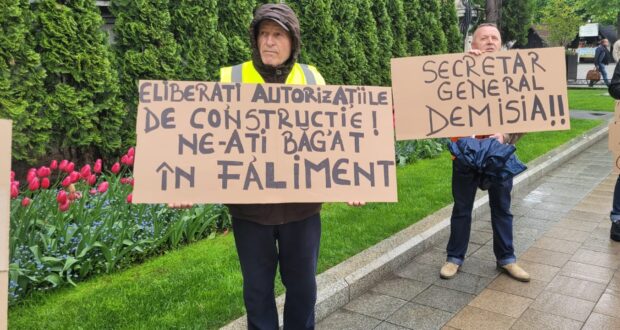 ELIBERATI AUTORIZAȚIILE
DE CONSTRUCTIE!
NE-ATI BĂGAT
ÎN FALIMENT
SECRETAR
GENERAL
DEMISIA!!